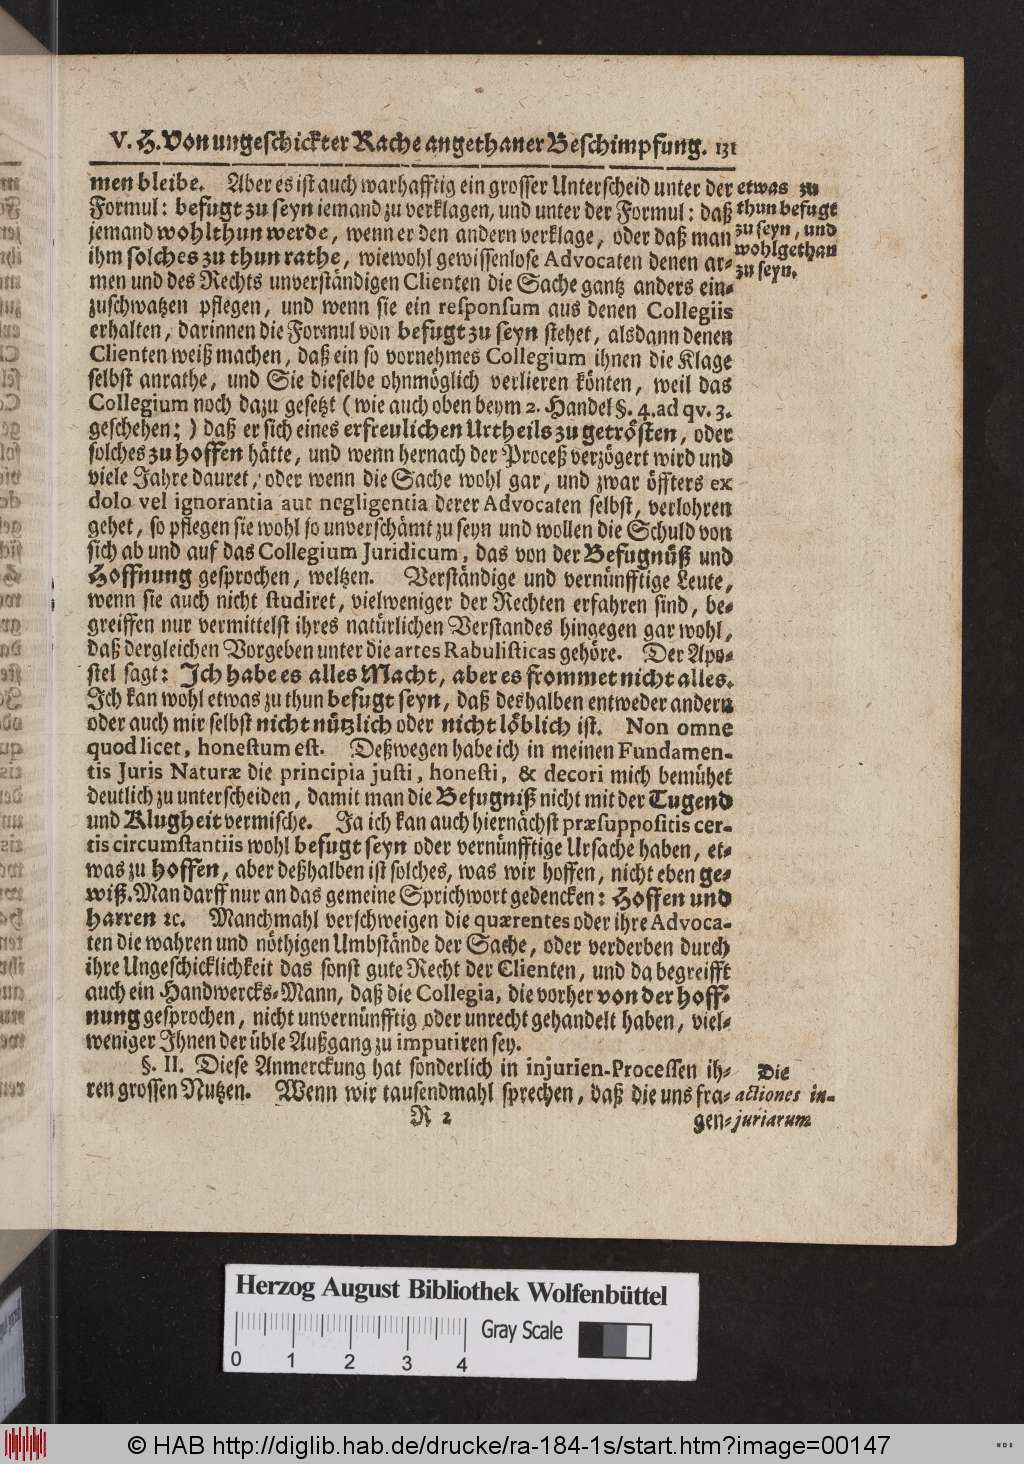 V. H. Von ungeschickter Rache angethaner Beschimpfung. 131
men bleibe. Aber es ist auch warhafftig ein grosser Unterscheid unter der
Formul: befugt zu seyn iemand zu verklagen, und unter der Formul: daß
jemand wohlthun werde, wenn er den andern verklage, oder daß man
ihm solches zu thun rathe, wiewohl gewissenlose Advocaten denen ar-
men und des Rechts unverständigen Clienten die Sache gantz anders ein-
zuschwatzen pflegen, und wenn sie ein responsum aus denen Collegiis
erhalten, darinnen die Formul von befugt zu seyn stehet, alsdann denen
Clienten weiß machen, daß ein so vornehmes Collegium ihnen die Klage
selbst anrathe, und Sie dieselbe ohnmöglich verlieren könten, weil das
Collegium noch dazu gesetzt (wie auch oben beym 2. Handel §. 4. ad qv. 3.
geschehen;) daß er sich eines erfreulichen Urtheils zu getrösten, oder
solches zu hoffen hätte, und wenn hernach der Proceß verzögert wird und
viele Jahre dauret, oder wenn die Sache wohl gar, und zwar öffters ex
dolo vel ignorantia aut negligentia derer Advocaten selbst, verlohren
gehet, so pflegen sie wohl so unverschämt zu seyn und wollen die Schuld von
sich ab und auf das Collegium Juridicum, das von der Befugnüß und
Hoffnung gesprochen, weltzen. Verständige und vernünfftige Leute,
wenn sie auch nicht studiret, vielweniger der Rechten erfahren sind, be-
greiffen nur vermittelst ihres natürlichen Verstandes hingegen gar wohl,
daß dergleichen Vorgeben unter die artes Rabulisticas gehöre. Der Apo-
stel sagt: Ich habe es alles Macht, aber es frommet nicht alles.
Ich kan wohl etwas zu thun befugt seyn, daß deshalben entweder andern
oder auch mir selbst nicht nützlich oder nicht löblich ist. Non omne
quod licet, honestum est. Deßwegen habe ich in meinen Fundamen-
tis Juris Naturæ die principia justi, honesti, & decori mich bemühet
deutlich zu unterscheiden, damit man die Befugniß nicht mit der Tugend
und Klugheit vermische. Ja ich kan auch hiernächst præsuppositis cer-
tis circumstantiis wohl befugt seyn oder vernünfftige Ursache haben, et-
was zu hoffen, aber deßhalben ist solches, was wir hoffen, nicht eben ge-
wiß. Man darff nur an das gemeine Sprichwort gedencken: Hoffen und
harren ꝛc. Manchmahl verschweigen die quærentes oder ihre Advoca-
ten die wahren und nöthigen Umbstände der Sache, oder verderben durch
ihre Ungeschicklichkeit das sonst gute Recht der Clienten, und da begreifft
auch ein Handwercks-Mann, daß die Collegia, die vorher von der hoff-
nung gesprochen, nicht unvernünfftig oder unrecht gehandelt haben, viel-
weniger Ihnen der üble Außgang zu imputiren sey.
§. II. Diese Anmerckung hat sonderlich in injurien-Processen ih-
ren grossen Nutzen. Wenn wir tausendmahl sprechen, daß die uns fra-
R 2
gen-
etwas zu
thun befugt
zu seyn, und
wohlgethan
zu seyn.
Die
actiones in-
juriarum
Herzog August Bibliothek Wolfenbüttel
0 1 2 3 4
Gray Scale
© HAB http://diglib.hab.de/drucke/ra-184-1s/start.htm?image=00147